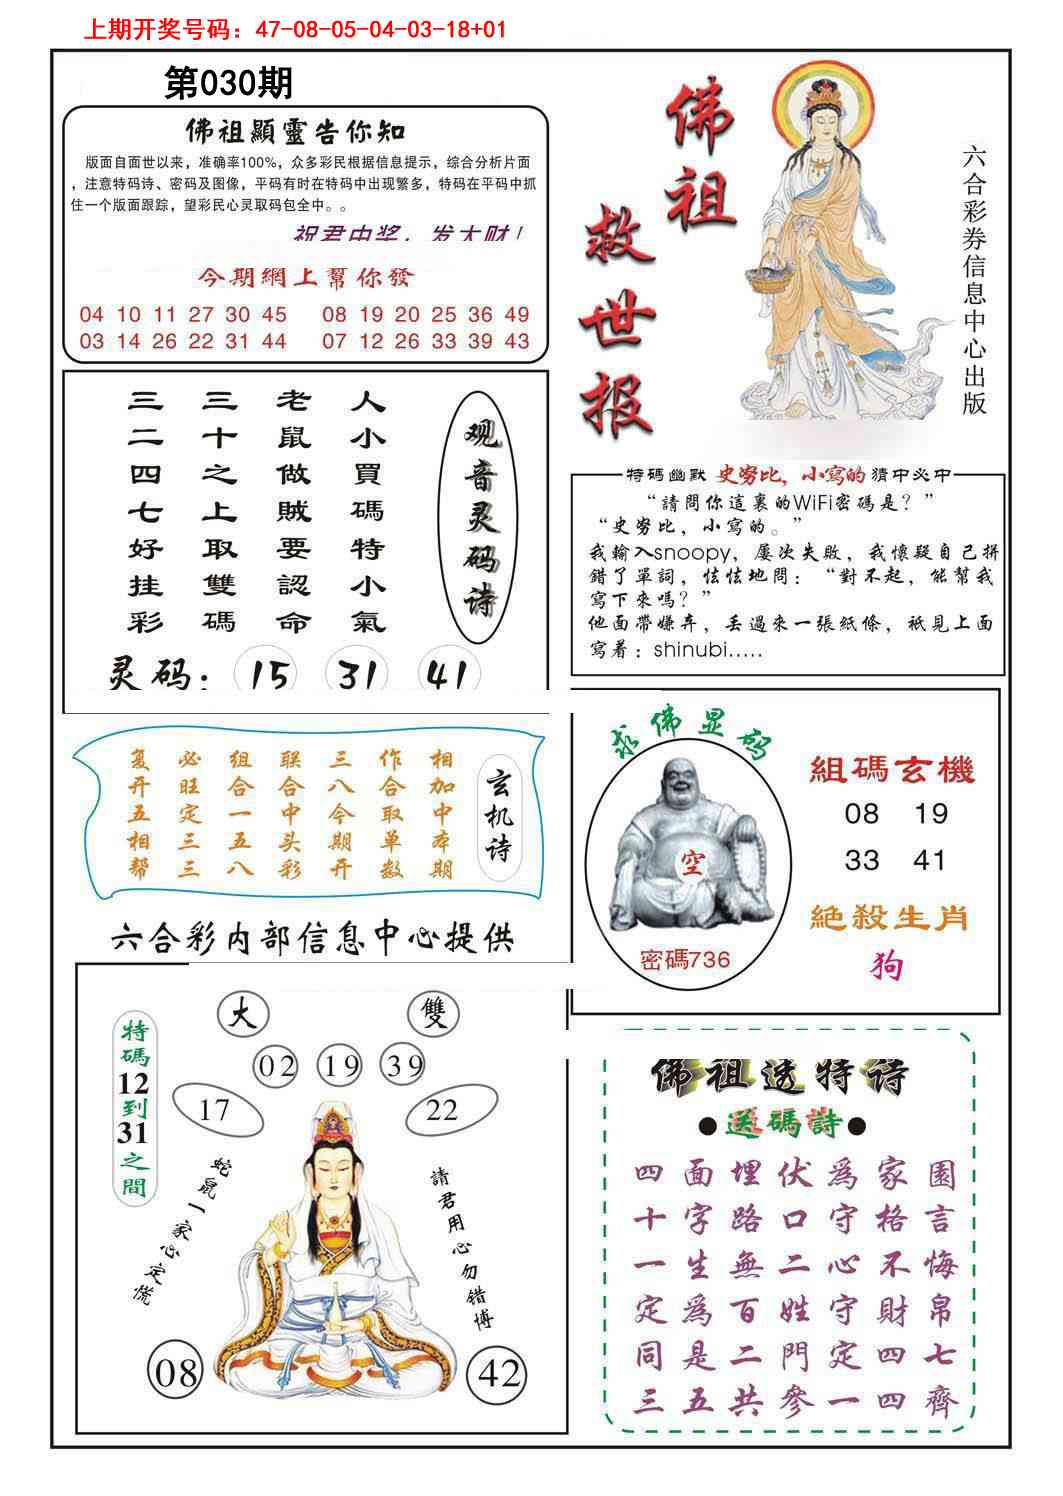 上期开奖号码：47-08-05-04-03-18+01
第030期
佛祖顯靈告你知
版面自面世以来，准确率100%，众多彩民根据信息提示，综合分析片面
，注意特码诗、密码及图像，平码有时在特码中出现繁多，特码在平码中抓
住一个版面跟踪，望彩民心灵取码包全中。。
祝君中奖，发大财！
今期網上幫你發
04 10 11 27 30 45 08 19 20 25 36 49
03 14 26 22 31 44 07 12 26 33 39 43
佛祖救世报
六合彩券信息中心出版
人小買碼特小氣
老鼠做贼要認命
三十之上取雙碼
三二四七好挂彩
观音灵码诗
灵码：15 31 41
特碼幽默 史努比，小寫的 猜中必中
“請問你這裏的WiFi密碼是？”
“史努比，小寫的。”
我輸入snoopy，屢次失敗，我懷疑自己拼
錯了單詞，怯怯地問：“對不起，能幫我
寫下來嗎？”
他面帶嫌弃，丢過來一張紙條，祇見上面
寫着：shinubi.....
玄机诗
相加中本期
作合取单数
三八今期开
联合中头彩
组合一五八
必旺定三三
复开五相帮
求佛显码
空
密碼736
組碼玄機
08 19
33 41
絶殺生肖
狗
六合彩内部信息中心提供
大 雙
02 19 39
17 22
特碼12到31之間
蛇鼠一家心定慌
請君用心勿错博
08 42
佛祖透特诗
●送碼詩●
四面埋伏爲家園
十字路口守格言
一生無二心不悔
定爲百姓守財帛
同是二門定四七
三五共參一四齊